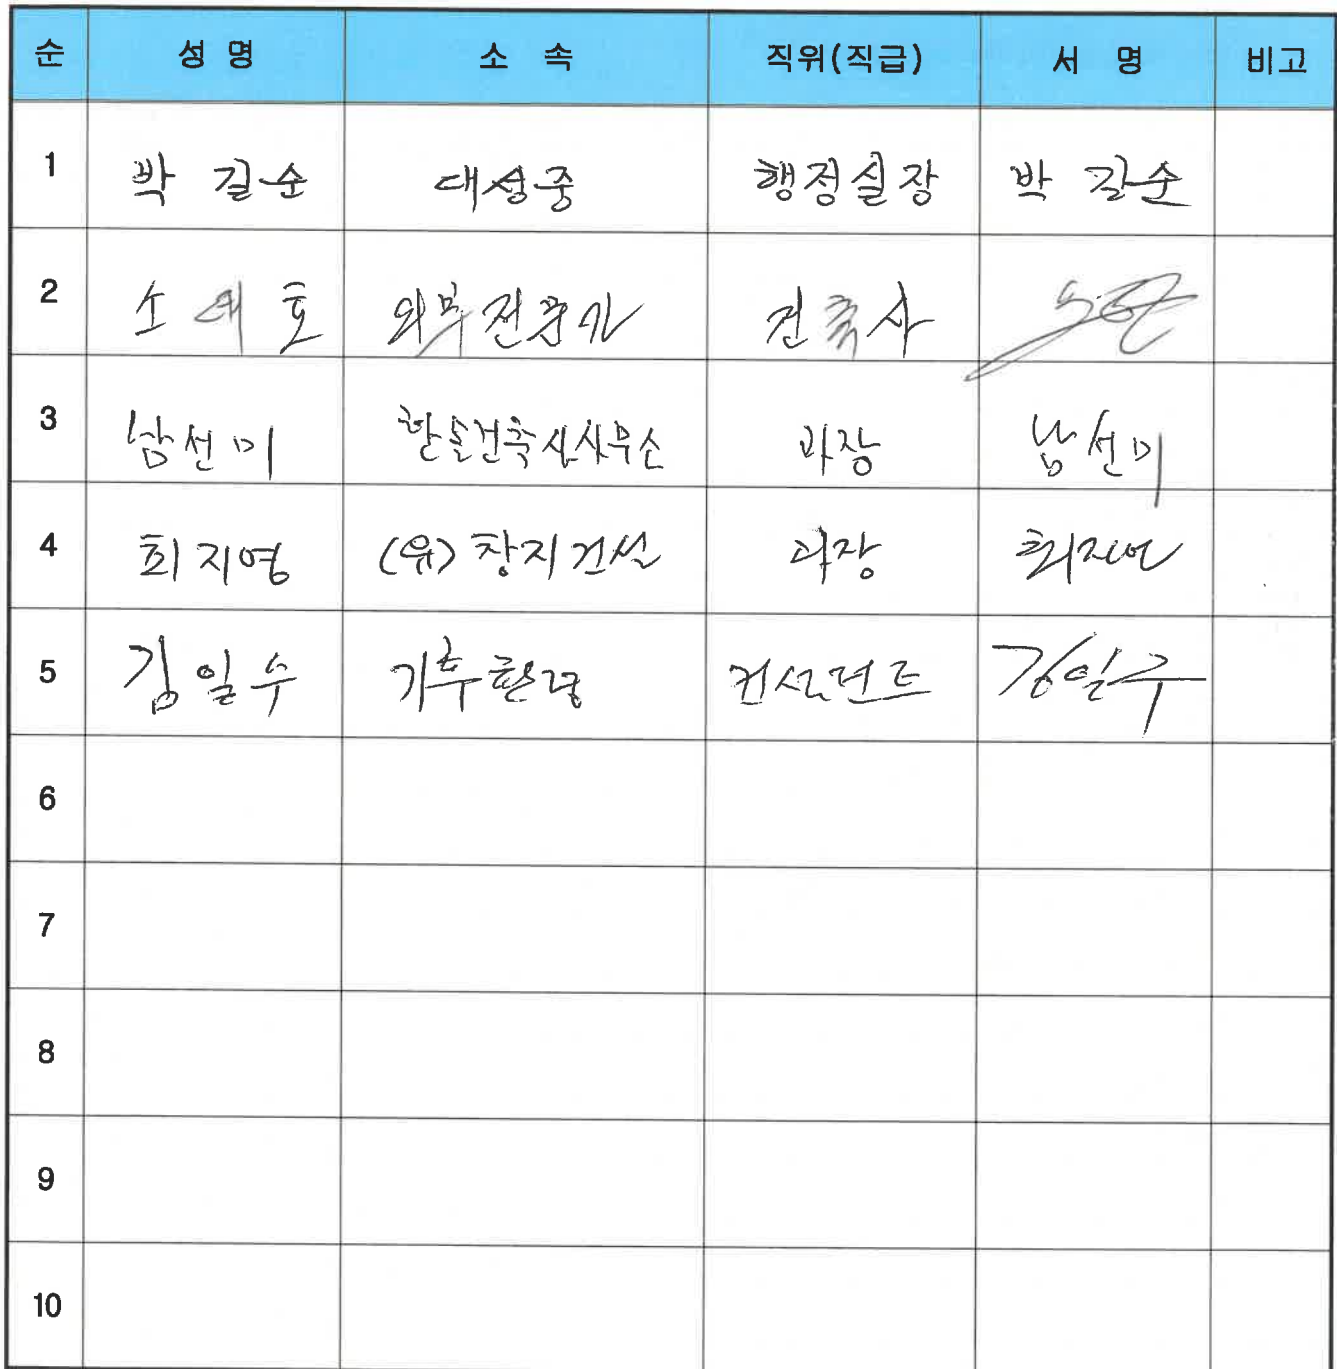 순 성 명 소 속 직위(직급) 서 명 비고
1 박 길순 대성중 행정실장 박 길순
2 소대호 외부전문가 건축사
3 남선미 한솔건축사사무소 과장 남선미
4 최지영 (유)창지건설 과장 최지영
5 김일수 기후환경 컨설턴트 김일수
6
7
8
9
10